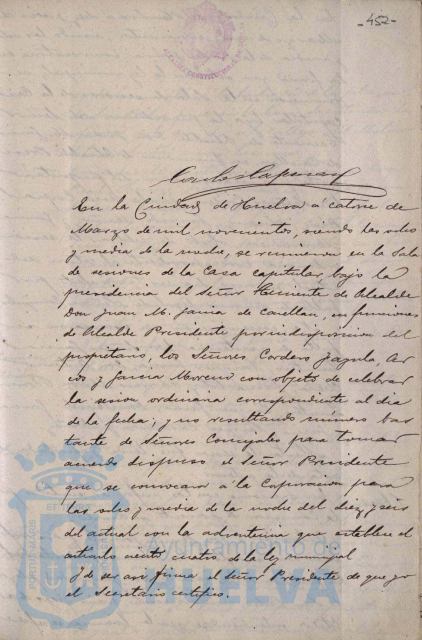 -452-
En la Ciudad de Huelva á catorce de
Marzo de mil novecientos, siendo las ocho
y media de la noche, se reunieron en la Sala
de sesiones de la Casa capitular bajo la
presidencia del Señor Teniente de Alcalde
Don Juan M. García de en funciones
de Alcalde Presidente por indisposicion del
propietario, los Señores Cordero, Zayala, Ar
cos y García Moreno con objeto de celebrar
la sesion ordinaria correspondiente al dia
de la fecha; y no resultando número bas
tante de Señores Concejales para tomar
acuerdo dispuso el Señor Presidente
que se convocara á la Corporacion para
las ocho y media de la noche del diez y seis
del actual con la advertencia que establece el
artículo ciento cuatro de la ley Municipal
Y de ser así firma el Señor Presidente de que yo
el Secretario certifico.
Ayuntamiento de
HUELVA